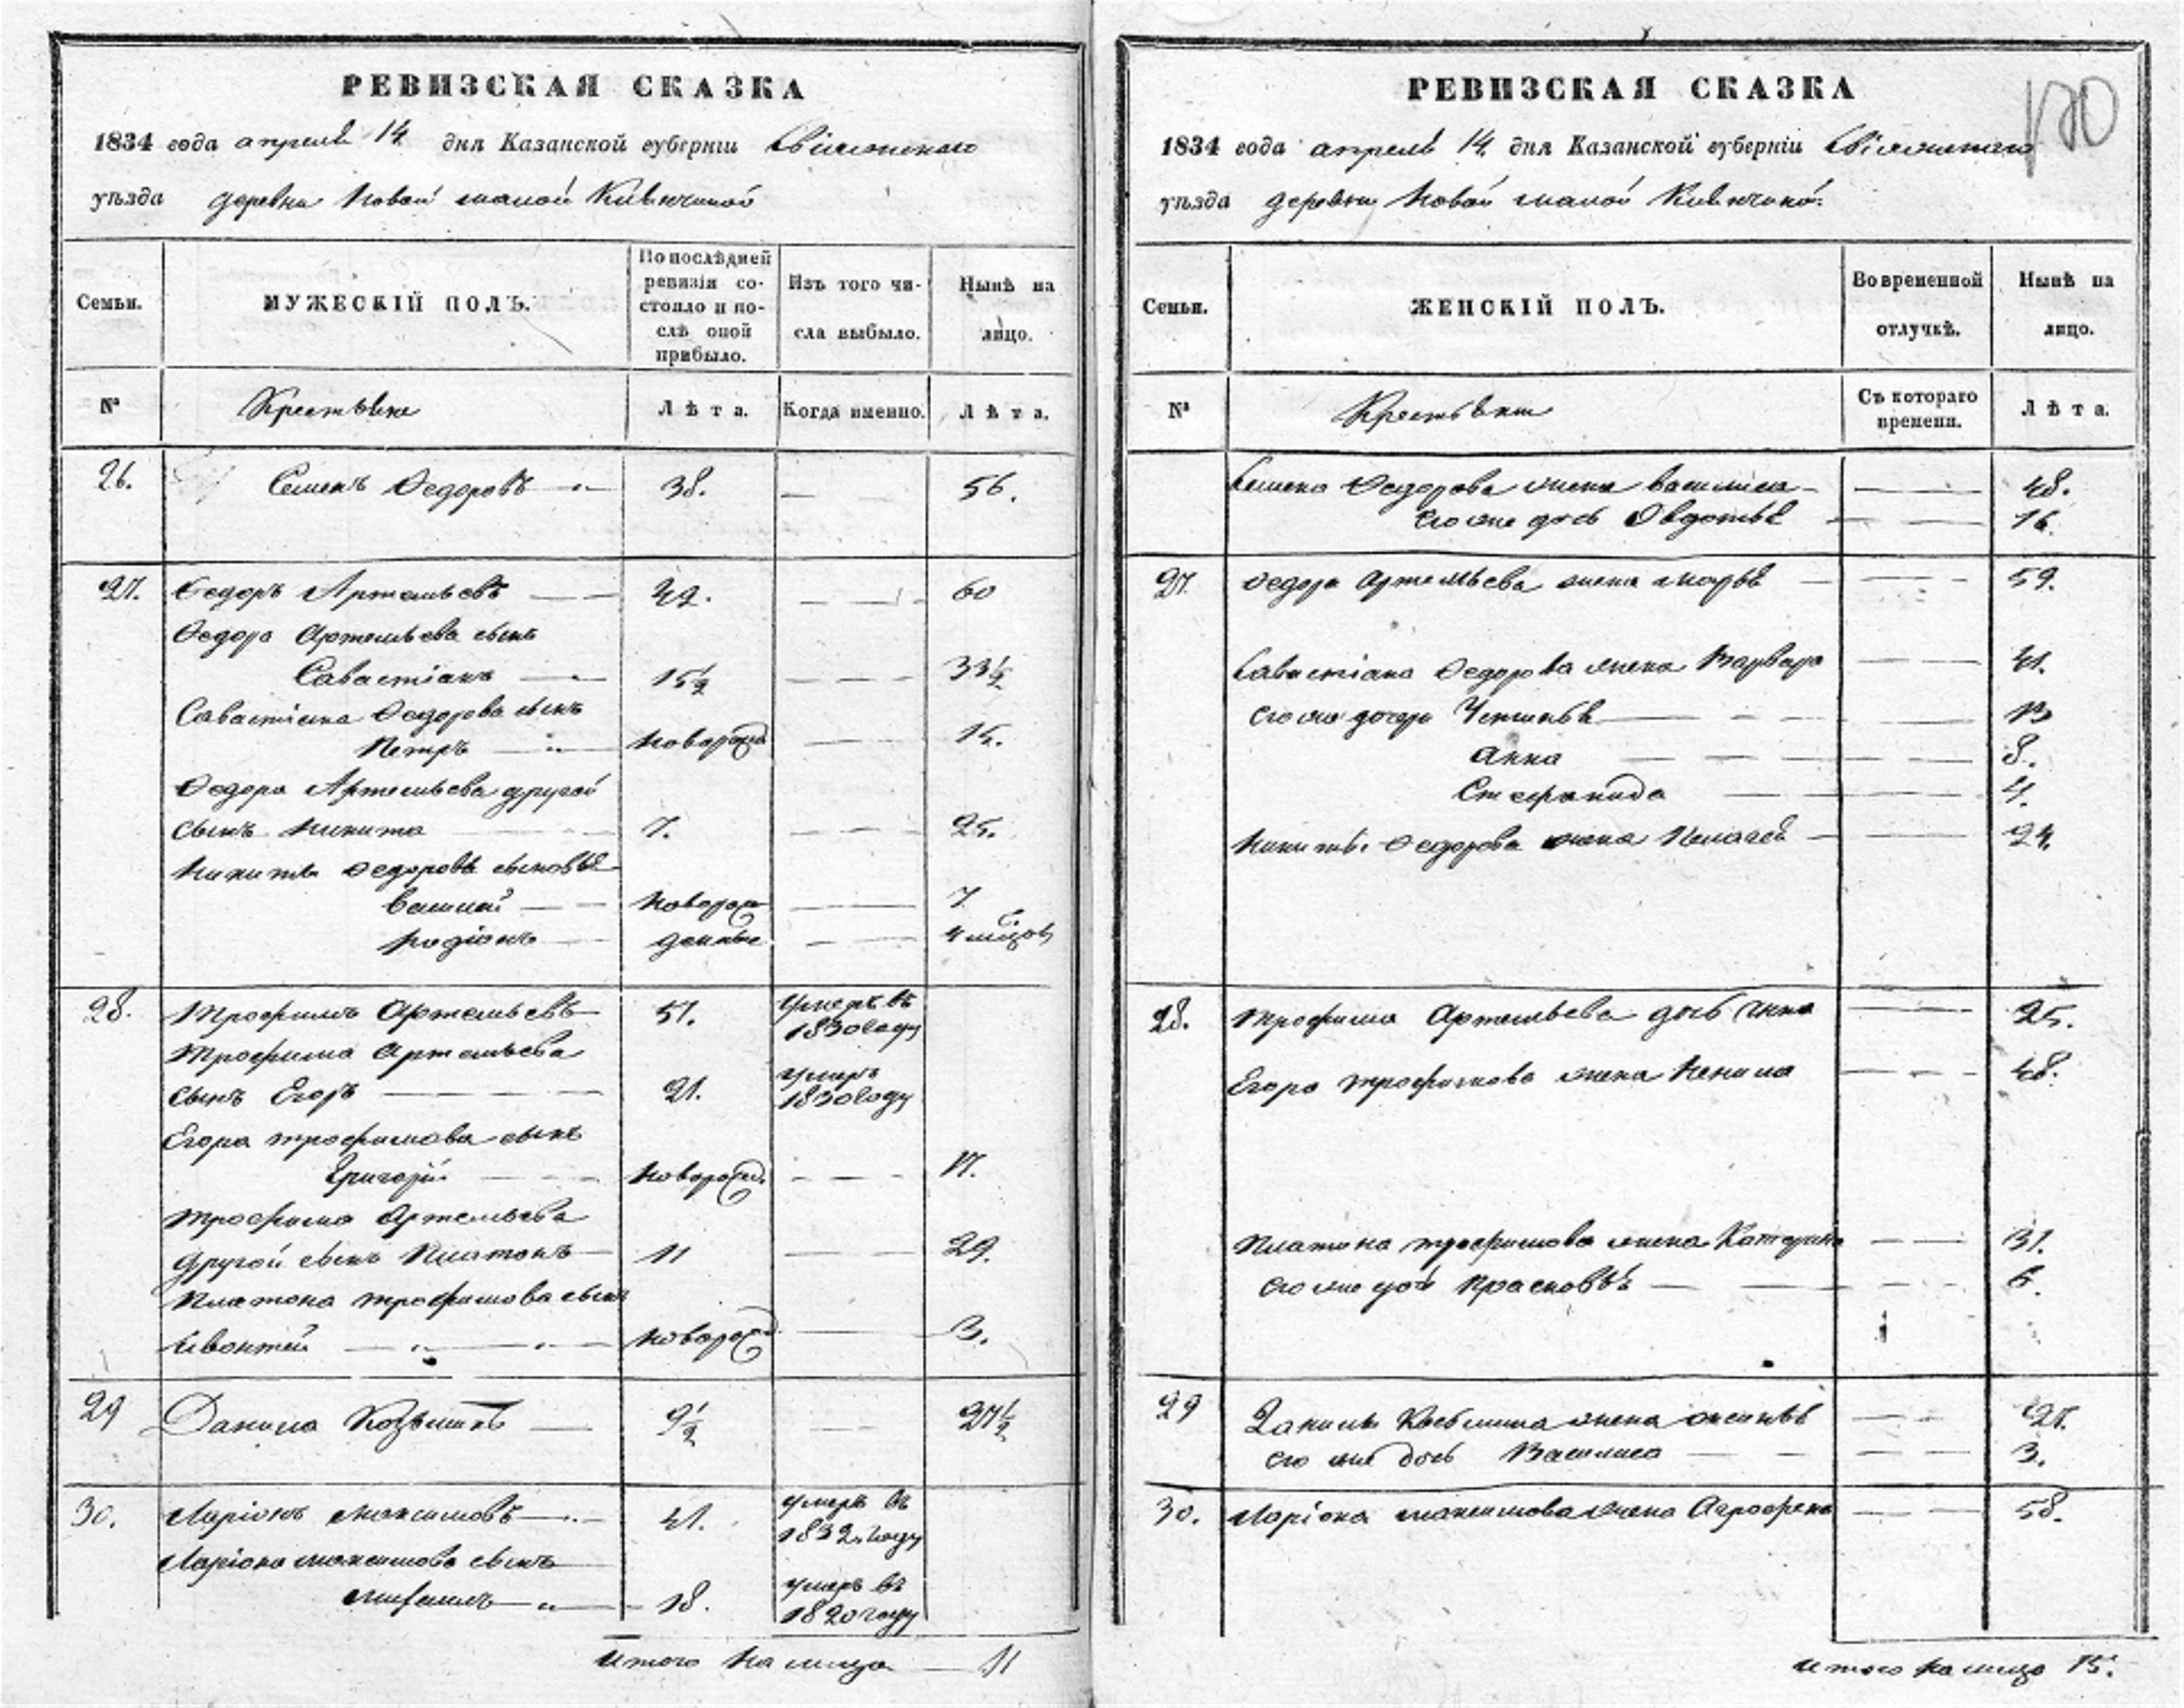 РЕВИЗСКАЯ СКАЗКА
1834 года апреля 14 дня Казанской губерніи Свіяжскаго
уѣзда деревни Новой малой
Семьи.
МУЖЕСКІЙ ПОЛЪ.
По послѣдней ревизіи состояло и послѣ оной прибыло.
Изъ того числа выбыло.
Нынѣ на лицо.
№
Крестьяне
Лѣта.
Когда именно.
Лѣта.
26. Семенъ Ѳедоровъ 38. — 56.
27. Ѳедоръ Артемьевъ 42. 60
Ѳедора Артемьева сынъ
Савастіанъ 15½ 33½
Савастіана Ѳедорова сынъ
Петръ новорожд 15.
Ѳедора Артемьева другой
сынъ Никита 7. 25.
Никиты Ѳедорова сыновья
новорож 7.
Родіонъ 4
28. Трофимъ Артемьевъ 51. умеръ въ
1830 году
Трофима Артемьева
сынъ Егоръ 21. умеръ
1830 году
Егора Трофимова сынъ
Григорій новорожд. 17.
Трофима Артемьева
другой сынъ Платонъ 11 29.
Платона Трофимова сынъ
новорожд. 3.
29 Данила Козьминъ 9½ 27½
30. Ларіонъ Максимовъ 41. умеръ въ
1832 году
Ларіона Максимова сынъ
Михаилъ 18. умеръ въ
1820 году
Итого на лицо 11
170
РЕВИЗСКАЯ СКАЗКА
1834 года апреля 14 дня Казанской губерніи Свіяжскаго
уѣзда деревни Новой малой
Семьи.
ЖЕНСКІЙ ПОЛЪ.
Во временной отлучкѣ.
Нынѣ на лицо.
№
Крестьянки
Съ котораго времени.
Лѣта.
Семена Ѳедорова жена Василиса 48.
его же дочь Авдотья 16.
27. Ѳедора Артемьева жена Марья 59.
Савастіана Ѳедорова жена Варвара 41.
его же дочери 13
Анна 8.
Стефанида 4.
Никиты Ѳедорова жена Пелагея 24.
28. Трофима Артемьева дочь Анна 25.
Егора Трофимова жена Ненила 48.
Платона Трофимова жена Катерина 31.
его же дочь Прасковья 6.
29 Данилы Козьмина жена Аксинья 27.
его же дочь Василиса 3.
30. Ларіона Максимова жена Аграфена 58.
Итого на лицо 15.